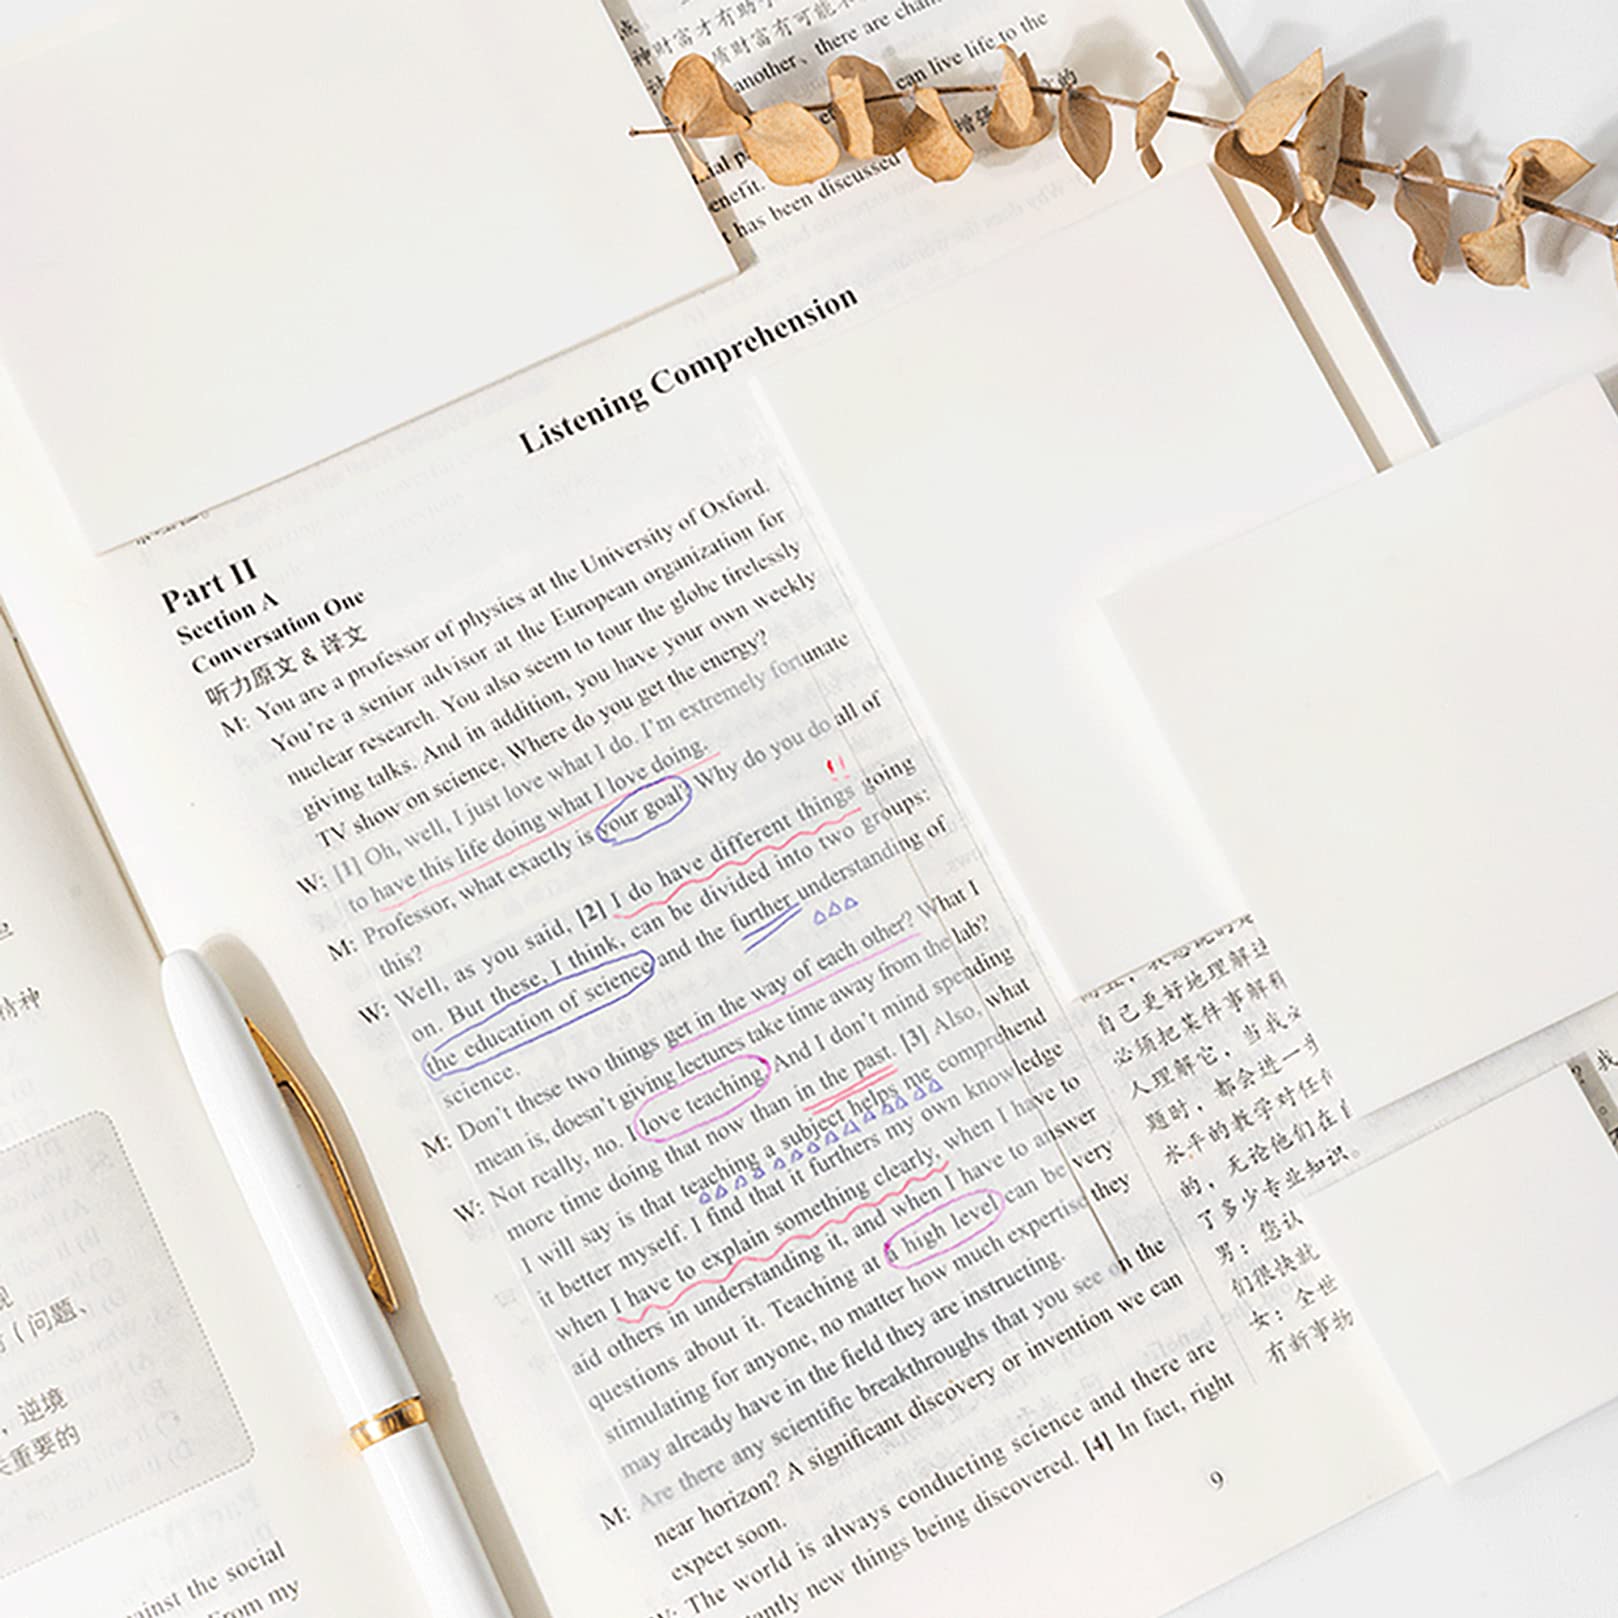 点
神财富才有助于
质财富有可能
there are chan
another、
can live life to the
的
增强
ial p
enefit.
t has been discussed
Listening Comprehension
Part II
Section A
Conversation One
听力原文 & 译文
M: You are a professor of physics at the University of Oxford.
You're a senior advisor at the European organization for
nuclear research. You also seem to tour the globe tirelessly
giving talks. And in addition, you have your own weekly
TV show on science. Where do you get the energy?
W: [1] Oh, well, I just love what I do. I'm extremely fortunate
to have this life doing what I love doing.
M: Professor, what exactly is your goal? Why do you do all of
this?
W: Well, as you said, [2] I do have different things going
on. But these, I think, can be divided into two groups:
the education of science and the further understanding of
science.
M: Don't these two things get in the way of each other? What I
mean is, doesn't giving lectures take time away from the lab?
W: Not really, no. I love teaching. And I don't mind spending
more time doing that now than in the past. [3] Also, what
I will say is that teaching a subject helps me comprehend
it better myself. I find that it furthers my own knowledge
when I have to explain something clearly, when I have to
aid others in understanding it, and when I have to answer
questions about it. Teaching at a high level can be very
stimulating for anyone, no matter how much expertise they
may already have in the field they are instructing.
M: Are there any scientific breakthroughs that you see on the
near horizon? A significant discovery or invention we can
expect soon.
W: The world is always conducting science and there are
tantly new things being discovered. [4] In fact, right
9
自己更好地理解这
必须把某件事解释
人理解它，当我必
题时，都会进一步
水平的教学对任何
的，无论他们在
了多少专业知识。
男：您认
们很快就
女：全世
有新事物
? 我
精神
现
(问题、
，逆境
关重要的
ainst the social
From my